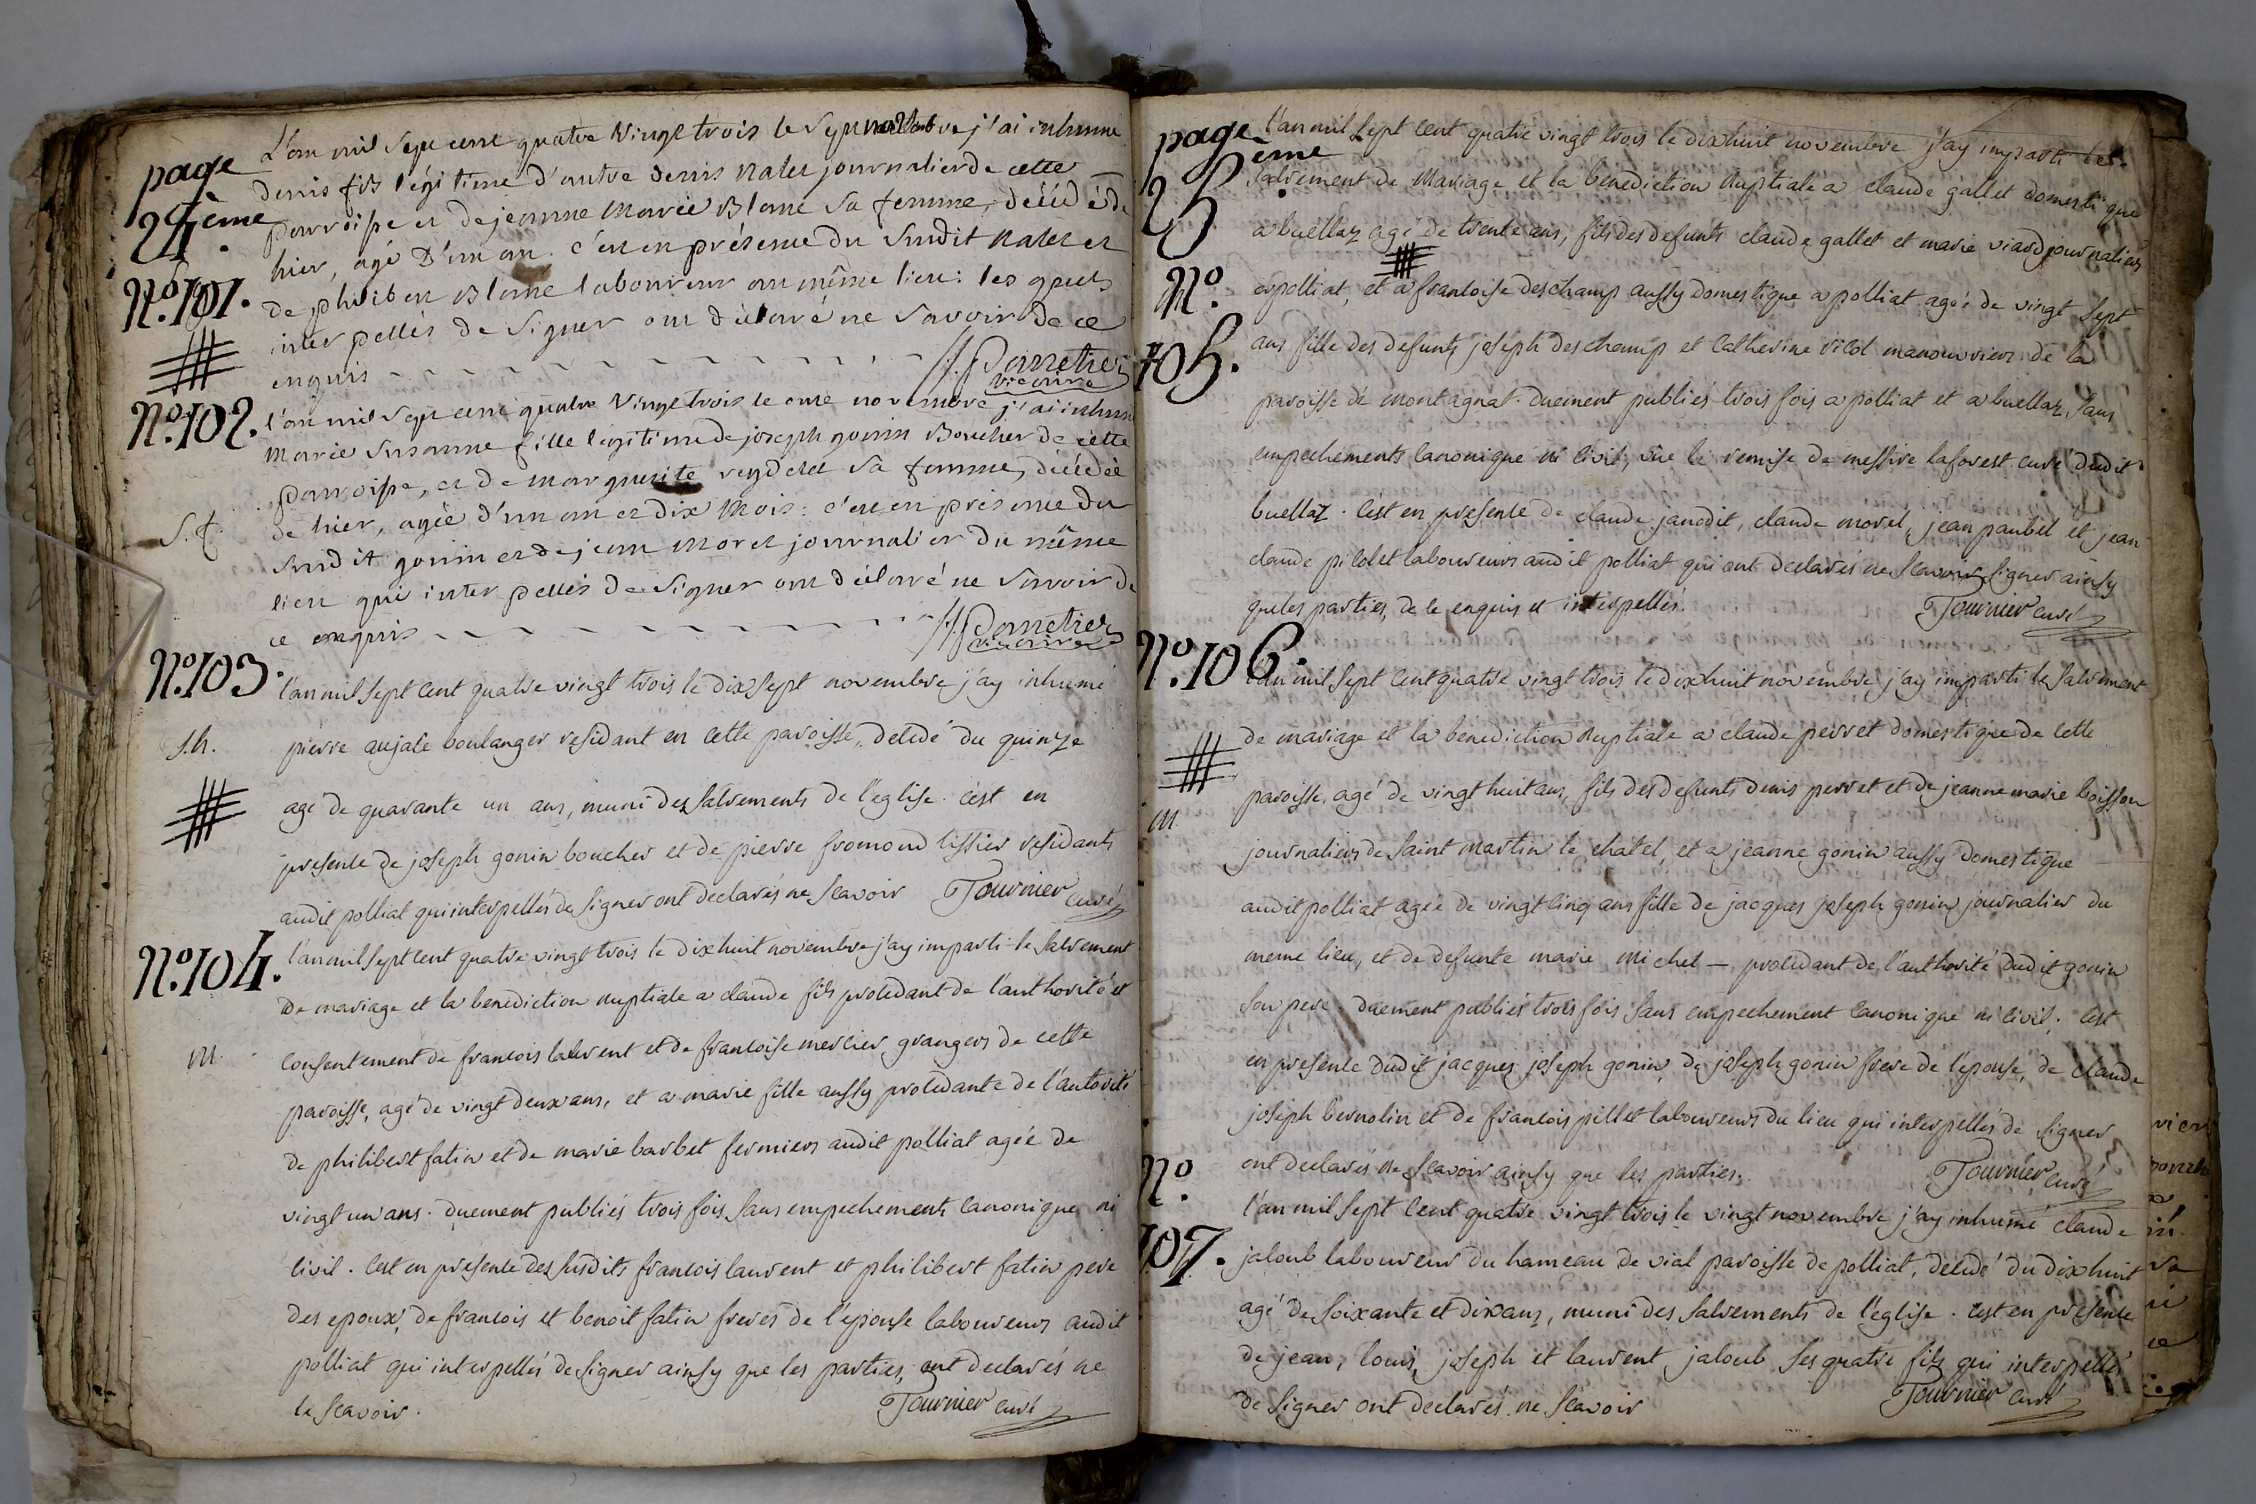 page
24.ème
L'an mil sept cent quatre Vingt trois le Sept novembre j'ai inhumé
denis fils légitime d'autre denis Nalet journalier de cette
parroisse et de jeanne Marie Blanc sa femme, décédé de
hier, agé D'un an. c'est en présence du Susdit Nalet et
No.101.
de philibert Blanc laboureur au même lieu: les quels
inter pellés de Signer ont déclaré ne Savoir de ce
enquis
Pometier
vicaire
No.102.
l'an mil sept cent quatre Vingt trois le onze novembre j'ai inhumé
Marie Susanne fille légitime de joseph gonin Boucher de cette
parroisse, et de marguerite reydelet sa femme, décédée
de hier, agée d'un an et dix Mois: c'est en présence du
S. f.
susdit gonin et de jean Moret journalier du même
lieu qui inter pellés de Signer ont déclaré ne Savoir de
ce enquis
Pometier
vicaire
No.103.
l'an mil sept cent quatre vingt trois le dix sept novembre j'ay inhumé
S.h.
pierre aujate boulanger residant en cette paroisse, decedé du quinze
agé de quarante un ans, muni des sacrements de l'eglise. c'est en
presence de joseph gonin boucher et de pierre fromond tissier residants
audit polliat qui interpellés de signer ont declarés ne scavoir Tournier curé
No.104.
l'an mil sept cent quatre vingt trois le dix huit novembre j'ay imparti le sacrement
de mariage et la benediction nuptiale a claude fils procedant de l'authorité et
m.
consentement de francois laurent et de francoise mercier grangers de cette
paroisse, agé de vingt deux ans, et a marie fille aussy procedante de l'autorité
de philibert fatin et de marie barbet fermiers audit polliat agée de
vingt un ans. duement publiés trois fois sans empechements canonique ni
civil. c'est en presence des susdits francois laurent et philibert fatin pere
des epoux, de francois et benoit fatin freres de l'epouse laboureurs audit
polliat qui interpellés de signer ainsy que les parties, ont declarés ne
le scavoir.
Tournier curé
page
25.ème
l'an mil sept cent quatre vingt trois le dix huit novembre j'ay imparti le
sacrement de Mariage et la benediction nuptiale a claude gallet domestique
a buellaz agé de trente ans, fils des defunts claude gallet et marie viard journaliers
No.
a polliat, et a francoise deschamp aussy domestique a polliat agée de vingt sept
105.
ans fille des defunts joseph deschamp et catherine vicot manouvriers de la
paroisse de montagnat. duement publiés trois fois a polliat et a buellaz, sans
empechements canonique ni civil, vûe la remise de messire laforest curé dudit
buellaz. c'est en presence de claude janodit, claude morel, jean paubel et jean
claude picolet laboureurs audit polliat qui ont declarés ne scavoir signer ainsy
que les parties, de ce enquis et interpellés.
Tournier curé
No.106.
l'an mil sept cent quatre vingt trois le dix huit novembre j'ay imparti le sacrement
de mariage et la benediction nuptiale a claude perret domestique de cette
paroisse, agé de vingt huit ans, fils des defunts denis perret et de jeanne marie boisson
m
journaliers de saint martin le chatel, et a jeanne gonin aussy domestique
audit polliat agée de vingt cinq ans fille de jacques joseph gonin journalier du
meme lieu, et de defunte marie michel — procedant de l'authorité dudit gonin
son pere. duement publiés trois fois sans empechement canonique ni civil; c'est
en presence dudit jacques joseph gonin, de joseph gonin frere de l'epouse, de claude
joseph bernolin et de francois pillet laboureurs du lieu qui interpellés de signer
ont declarés ne scavoir ainsy que les parties.
Tournier curé
No.
107.
l'an mil sept cent quatre vingt trois le vingt novembre j'ay inhumé claude
jacoub laboureur du hameau de vial paroisse de polliat, decedé du dix huit
agé de soixante et dix ans, muni des sacrements de l'eglise. c'est en presence
de jean, louis, joseph et laurent jacoub ses quatre fils qui interpellés
de signer ont declarés ne scavoir
Tournier curé